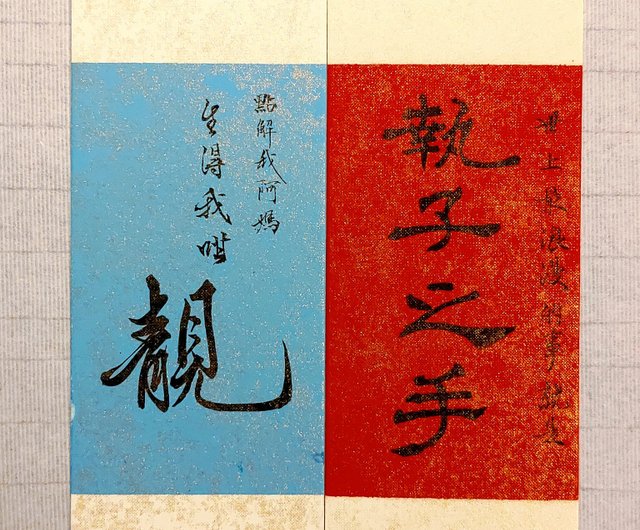 世上最浪漫的事就是
執子之手
點解我阿媽
生得我咁
靚